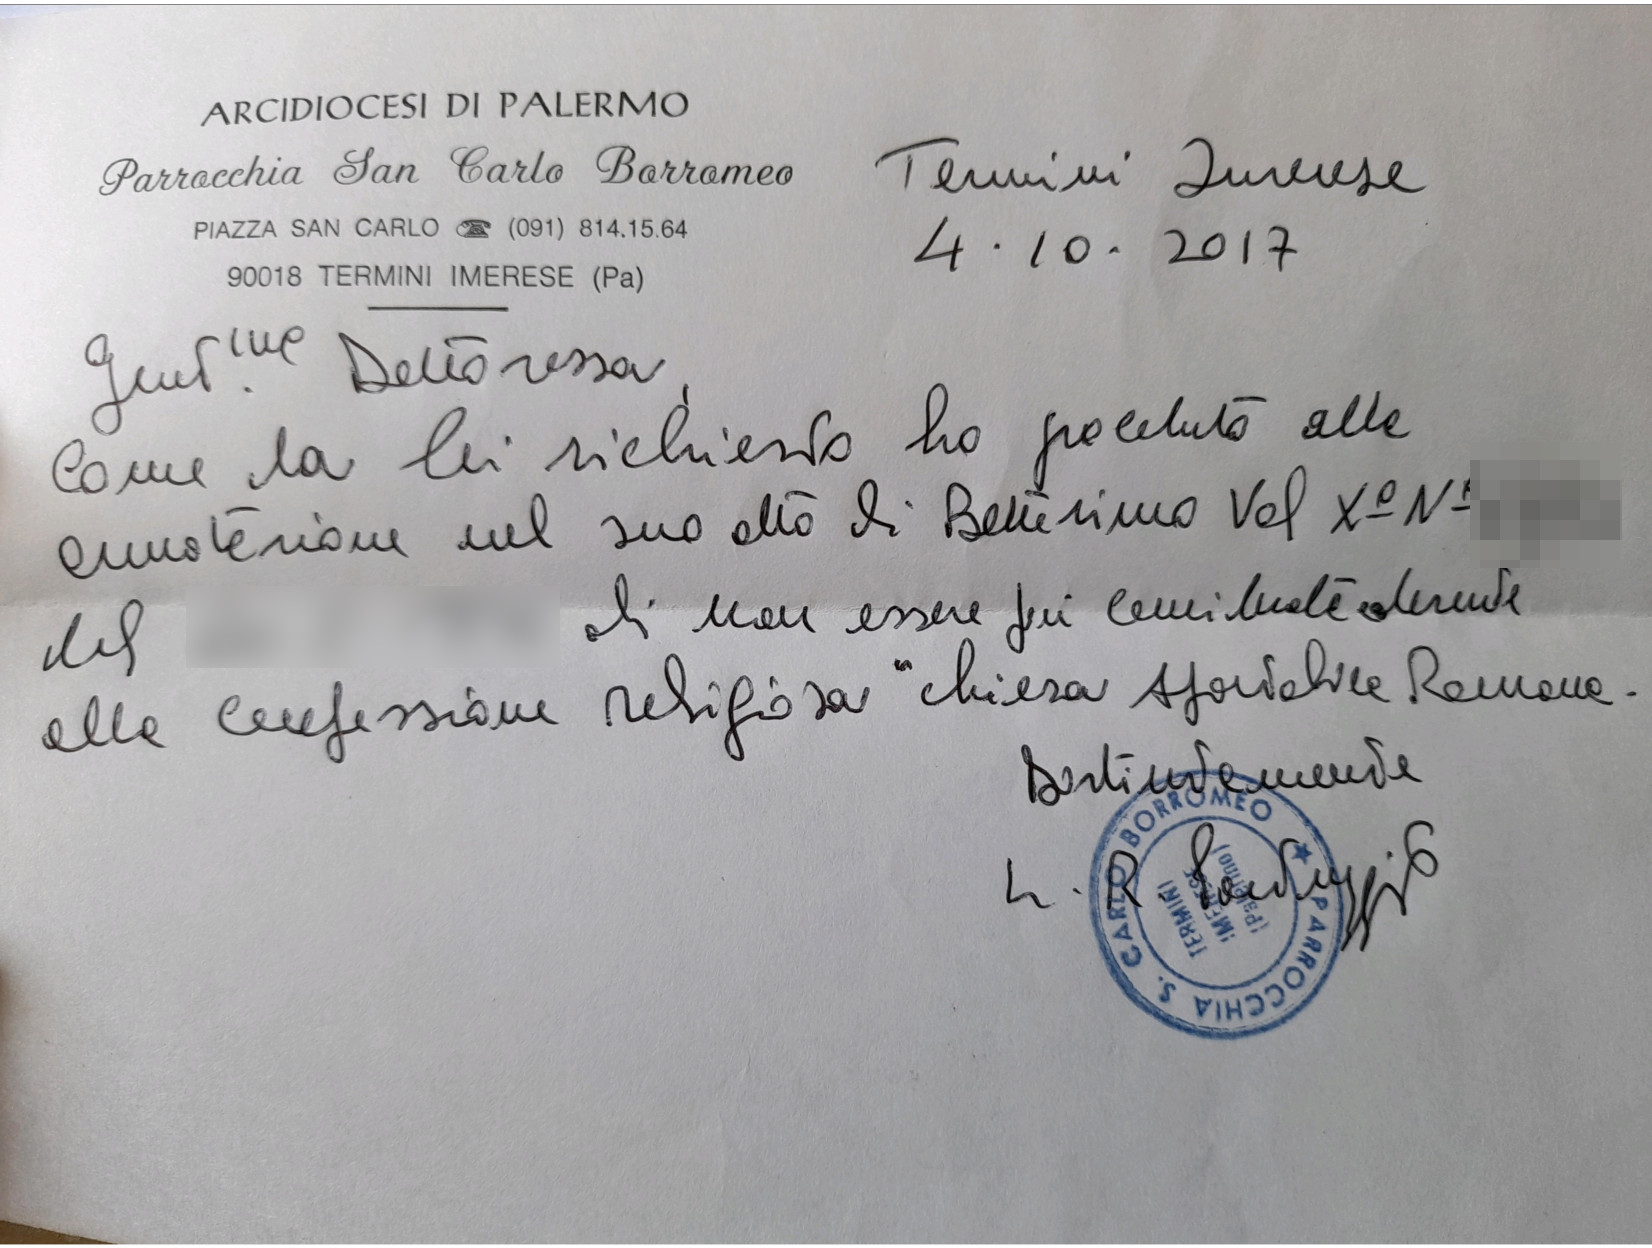 ARCIDIOCESI DI PALERMO
Parrocchia San Carlo Borromeo
PIAZZA SAN CARLO ☎ (091) 814.15.64
90018 TERMINI IMERESE (Pa)
Termini Imerese
4.10.2017
Gent.ma Dottoressa,
Come da lei richiesto ho proceduto alla
annotazione nel suo atto di Battesimo Vol Xº Nº
del di non essere più considerata aderente
alla confessione religiosa "chiesa Apostolica Romana.
Distintamente
PARROCCHIA S. CARLO BORROMEO
TERMINI
IMERESE
(Palermo)